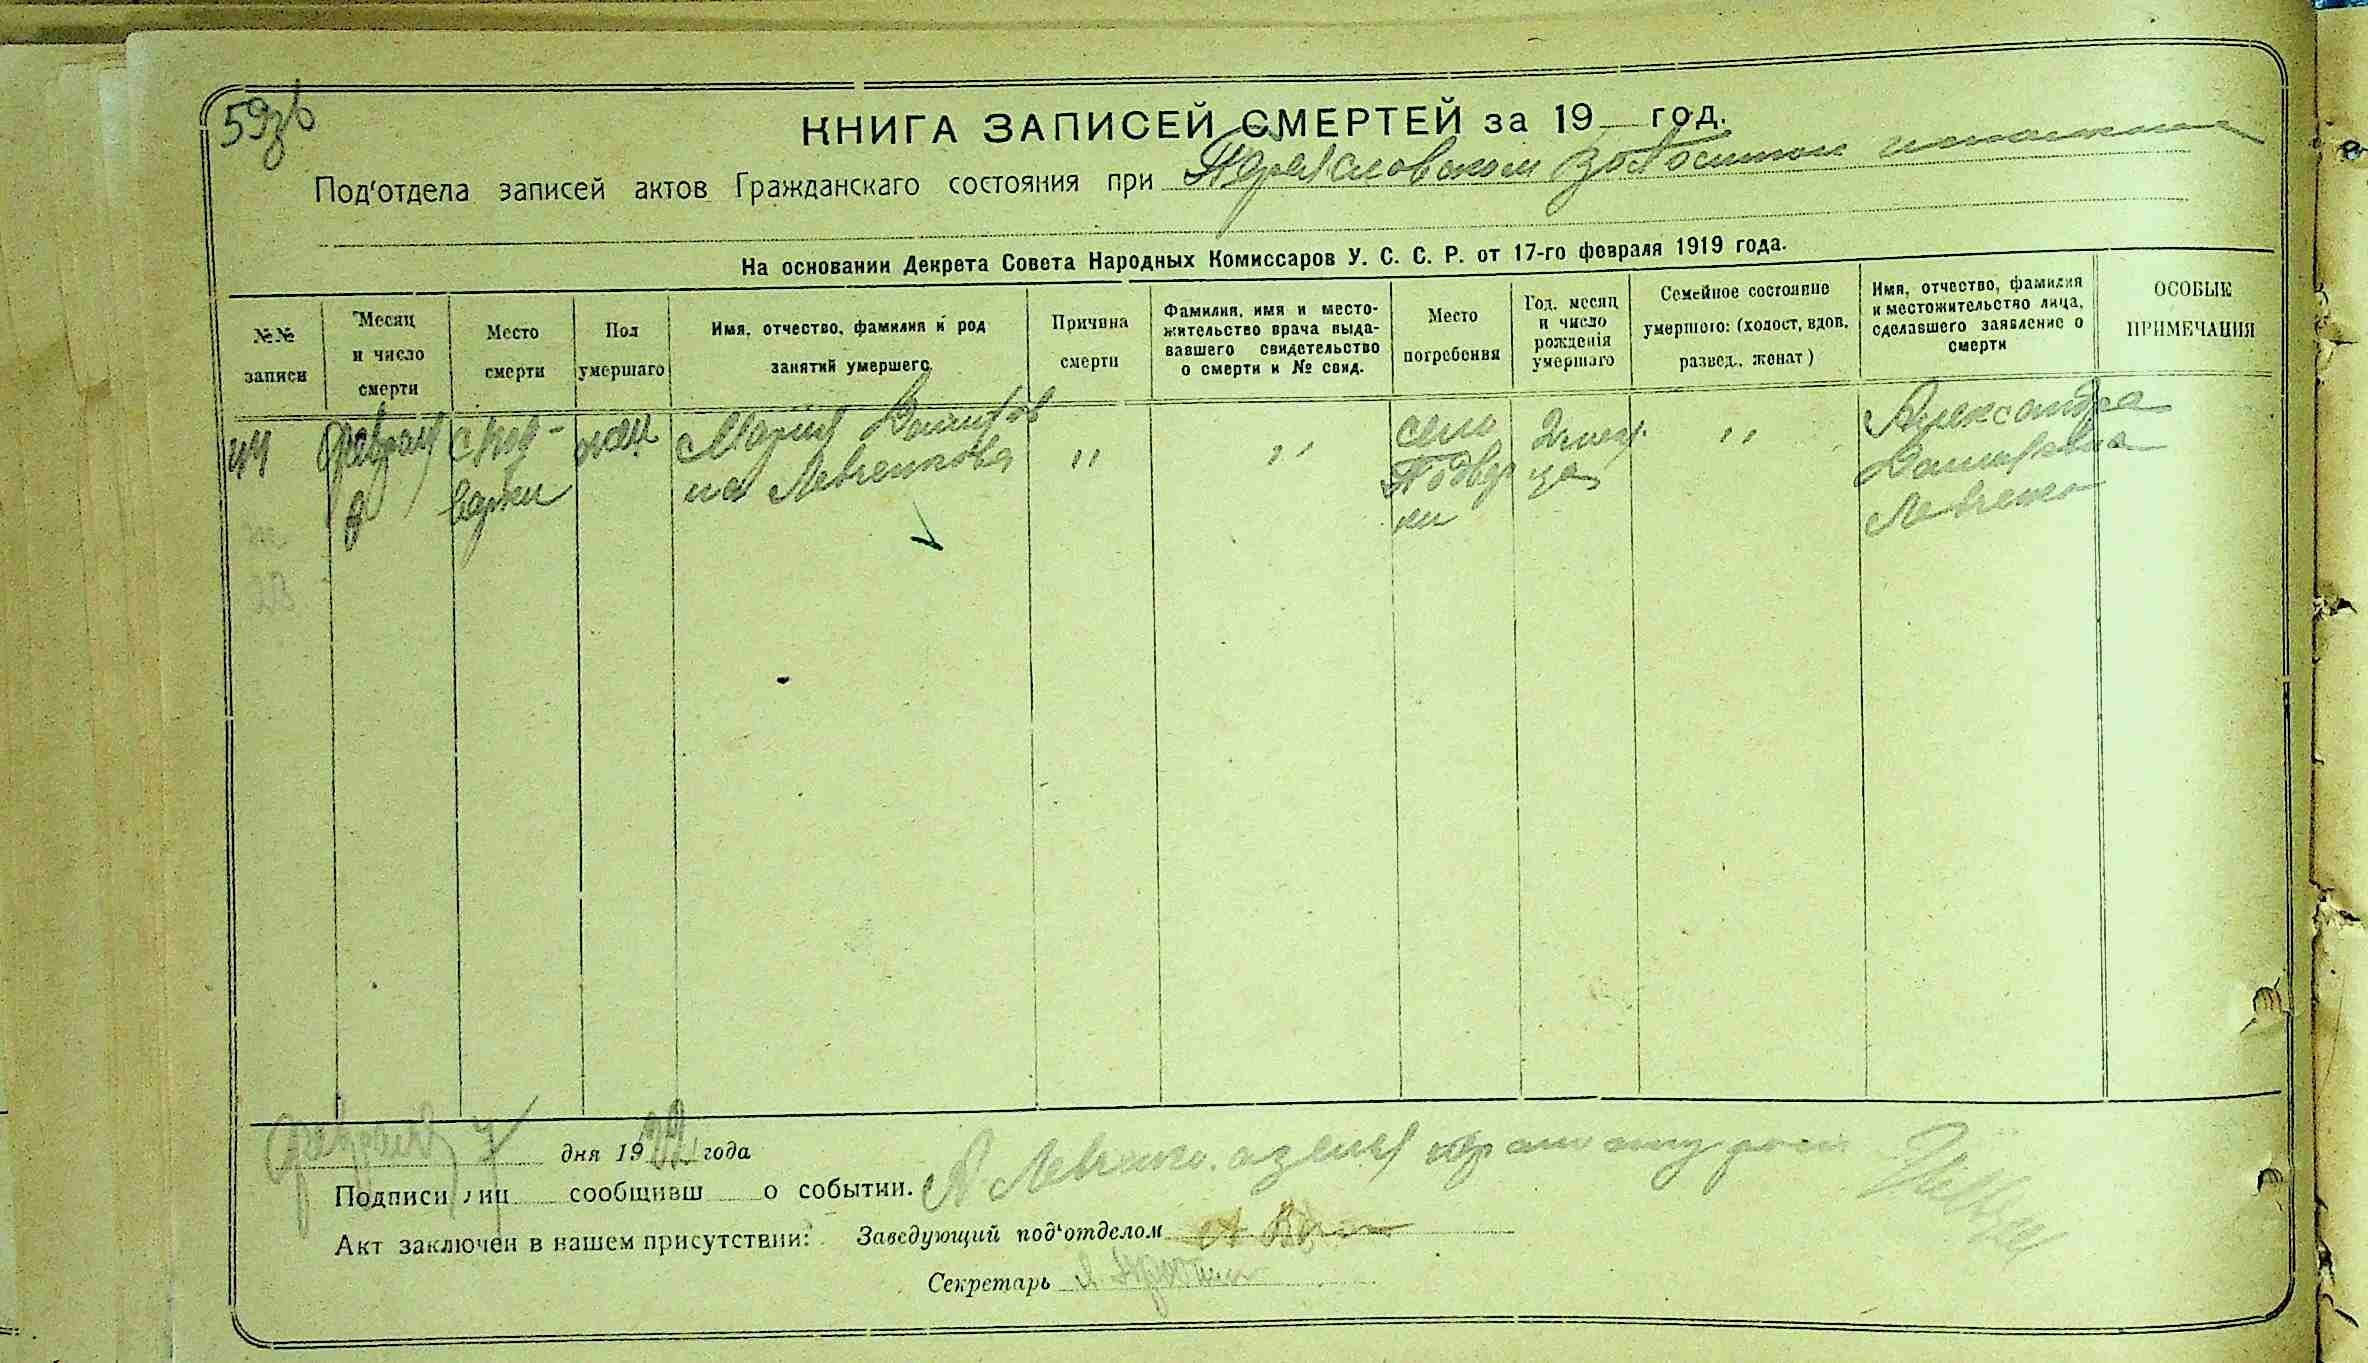 КНИГА ЗАПИСЕЙ СМЕРТЕЙ за 19 год.
Под'отдела записей актов Гражданскаго состояния при Переяславском волостном
На основании Декрета Совета Народных Комиссаров У. С. С. Р. от 17-го февраля 1919 года.
№№ записи
Месяц и число смерти
Место смерти
Пол умершаго
Имя, отчество, фамилия и род занятий умершего
Причина смерти
Фамилия, имя и место-
жительство врача выда-
вавшего свидетельство
о смерти и № свид.
Место погребения
Год, месяц
и число
рождения
умершаго
Семейное состояние
умершого: (холост, вдов,
развед., женат)
Имя, отчество, фамилия
и местожительство лица,
сделавшего заявление о
смерти
ОСОБЫЕ ПРИМЕЧАНИЯ
44
Февраля
с Под-
варки
жен
Мария
на Левченкова
" 
" 
село
Подвар
ки
2 меся
ца
" 
Александра
Левченко
дня 1922 года
Подписи лиц сообщивш о событии. А Левченко
Акт заключен в нашем присутствии: Заведующий под'отделом
Секретарь